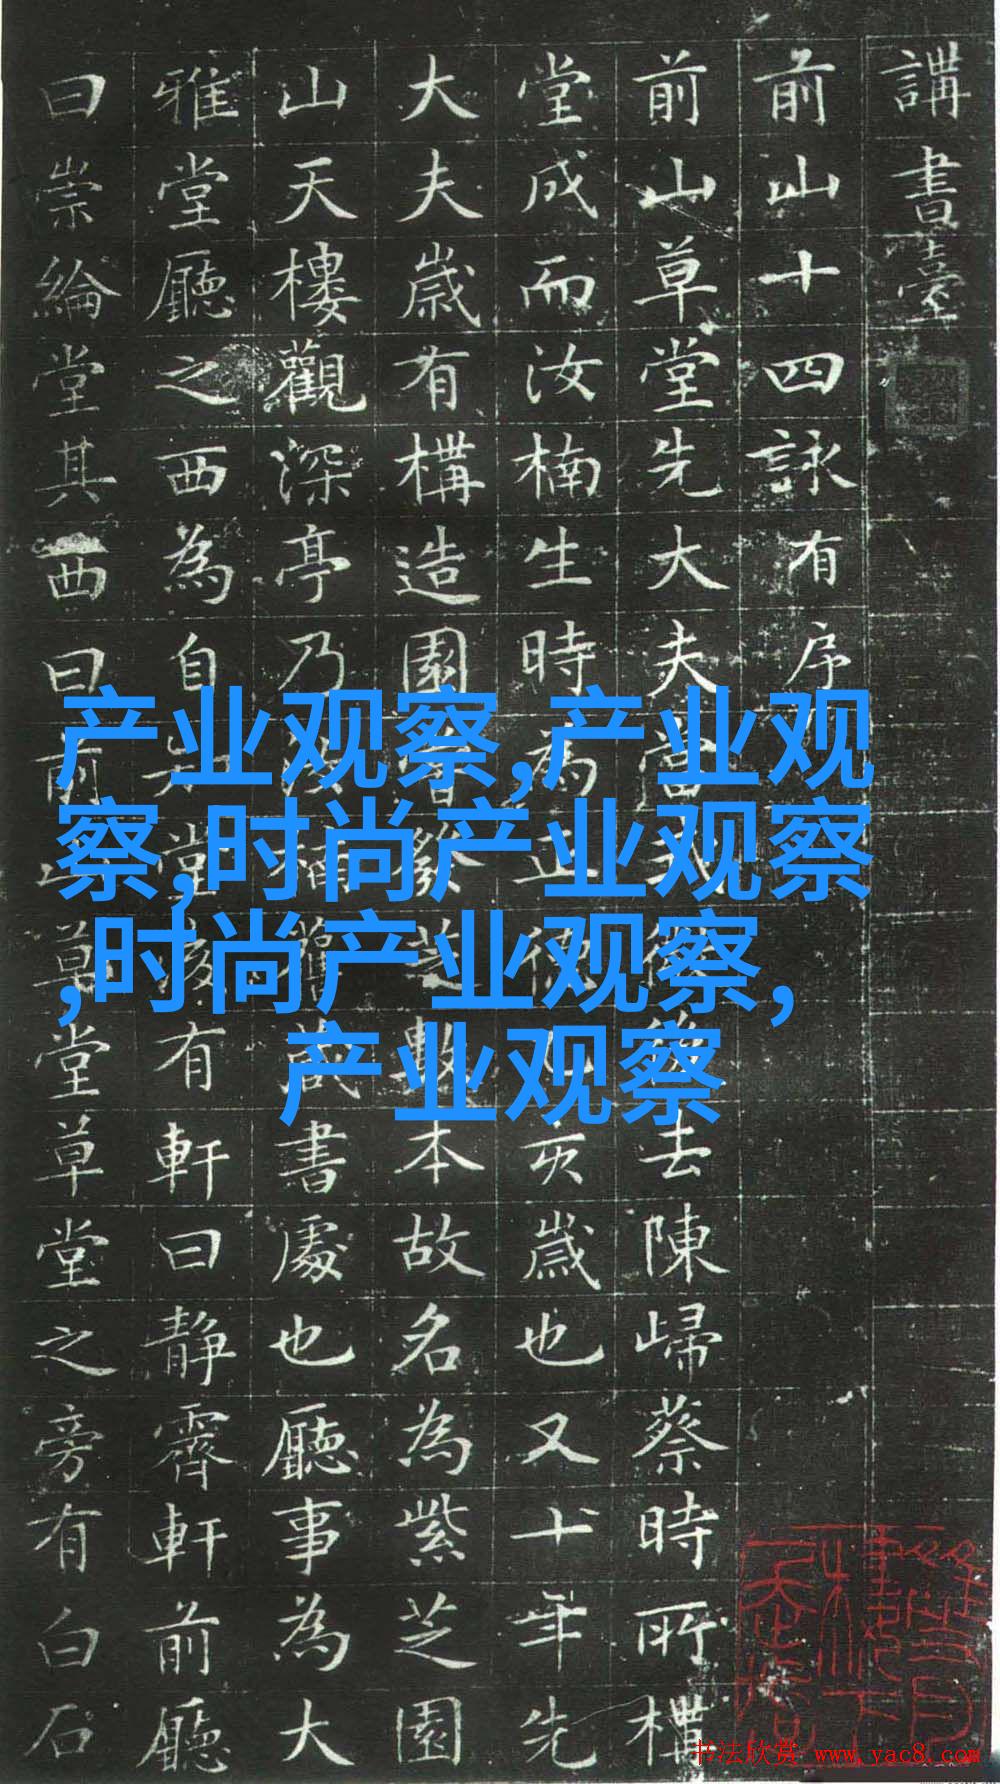 講書臺
前山十四詠有序
前山草堂先大夫
去陳歸蔡時所
堂成而汝楠生時為
亥歲也又十年先
大夫歲有構造園
數本故名為紫芝園
山天樓觀深亭乃
藏書處也廳事為大
雅堂廳之西為自
有軒曰静霽軒前廳
曰崇綸堂其西曰前
草堂草堂之旁有白石
产业观察,产业观
察,时尚产业观察
,时尚产业观察,
产业观察
书法欣赏 www.yac8.com